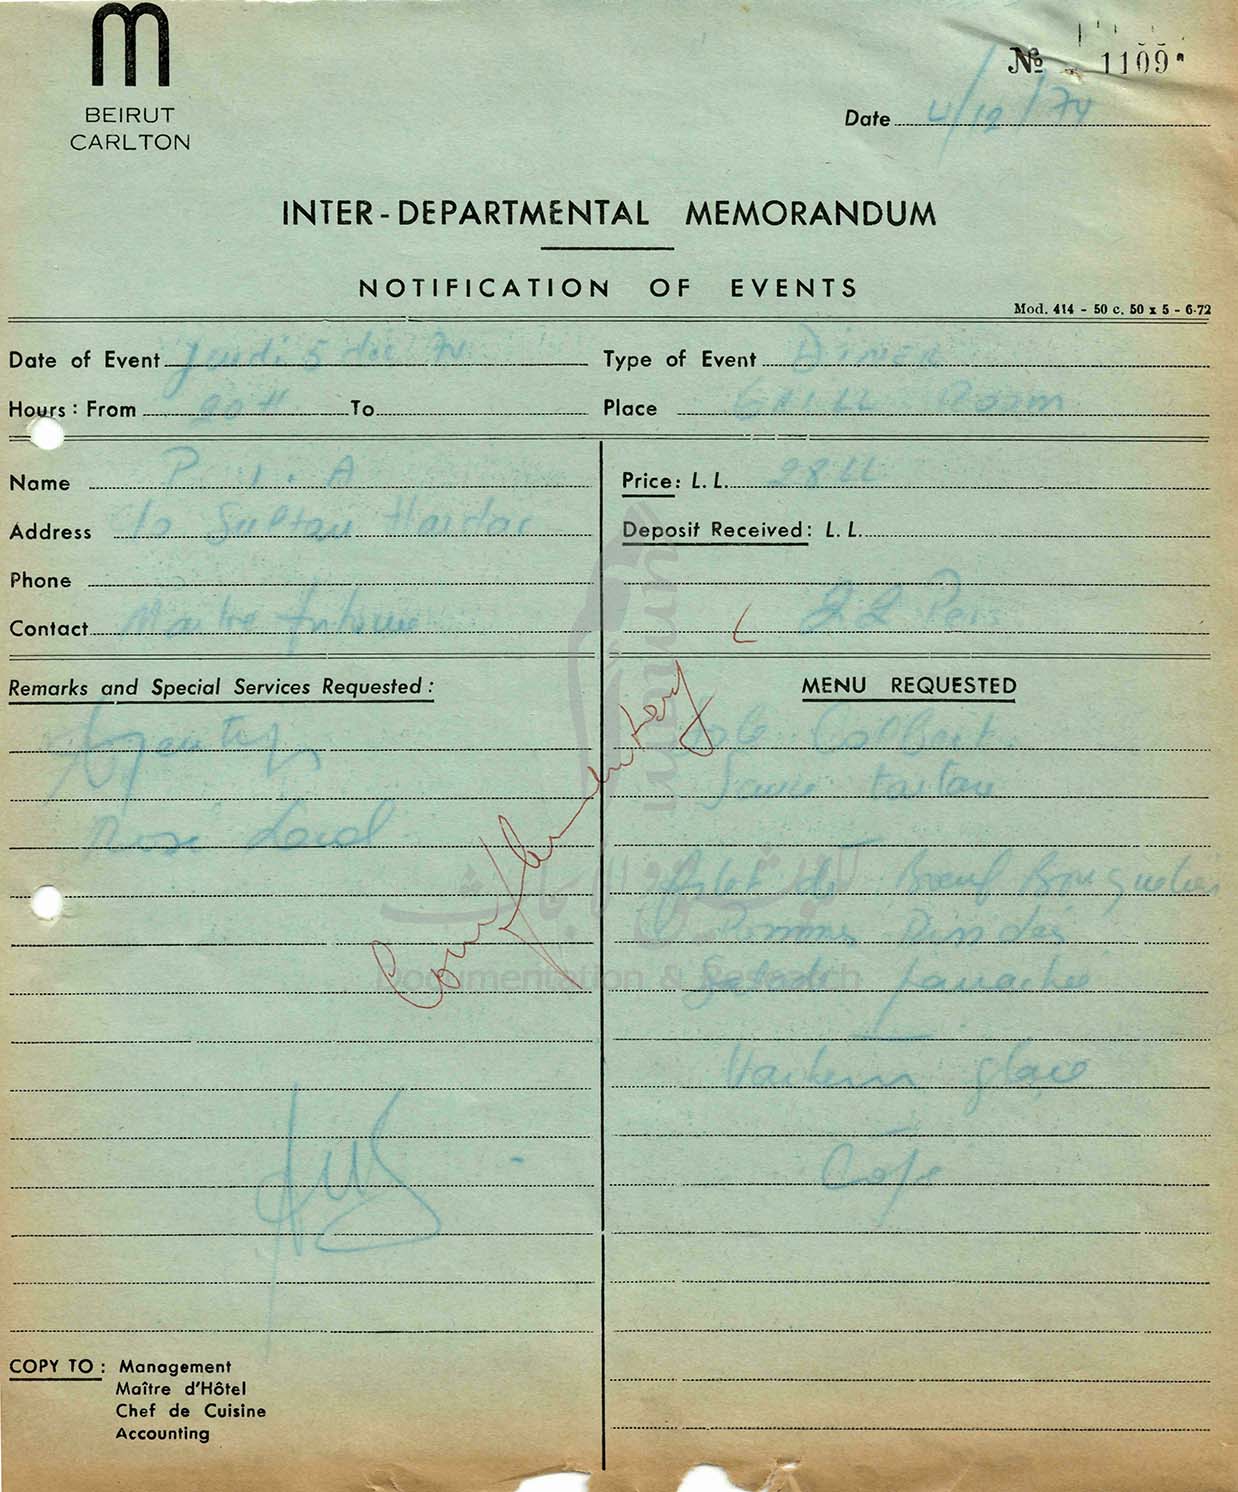 BEIRUT
CARLTON
№ 1109
Date 4/12/74
INTER-DEPARTMENTAL MEMORANDUM
NOTIFICATION OF EVENTS
Mod. 414 - 50 c. 50 x 5 - 6-72
Date of Event Jeudi 5 dec 74
Type of Event DINER
Hours: From 20 H To
Place GRILL Room
Name P. I. A
Price: L. L. 28 LL
Address c/o Sultan Haidar
Deposit Received: L. L.
Phone
Contact Maitre Antoine
22 Pers
Remarks and Special Services Requested:
MENU REQUESTED
Complimentary
Sole Colbert
Sauce tartare
Rosé Local
Filet de Boeuf Bouquetière
Pommes
Salade panachée
glacé
Café
COPY TO: Management
Maître d'Hôtel
Chef de Cuisine
Accounting
umam
Documentation & Research